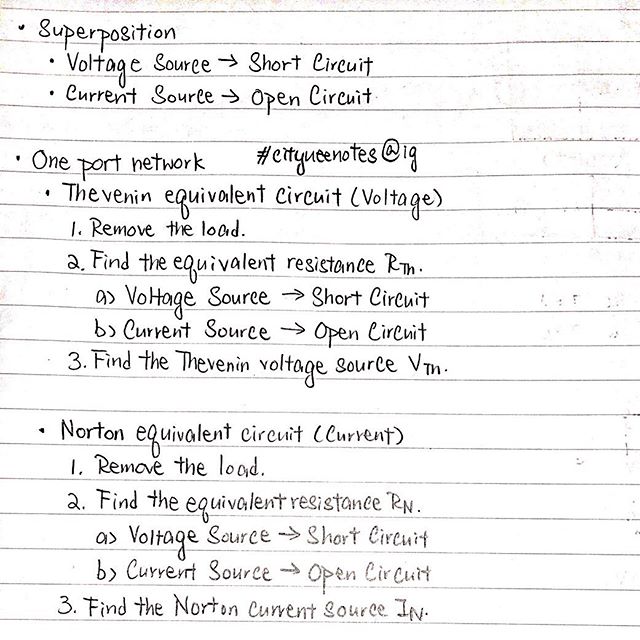 • Superposition
• Voltage Source → Short Circuit
• Current Source → Open Circuit
• One port network #cityueenotes@ig
• Thevenin equivalent Circuit (Voltage)
1. Remove the load.
2. Find the equivalent resistance RTh.
a) Voltage Source → Short Circuit
b) Current Source → Open Circuit
3. Find the Thevenin voltage source VTh.
• Norton equivalent circuit (Current)
1. Remove the load.
2. Find the equivalent resistance RN.
a) Voltage Source → Short Circuit
b) Current Source → Open Circuit
3. Find the Norton current source IN.